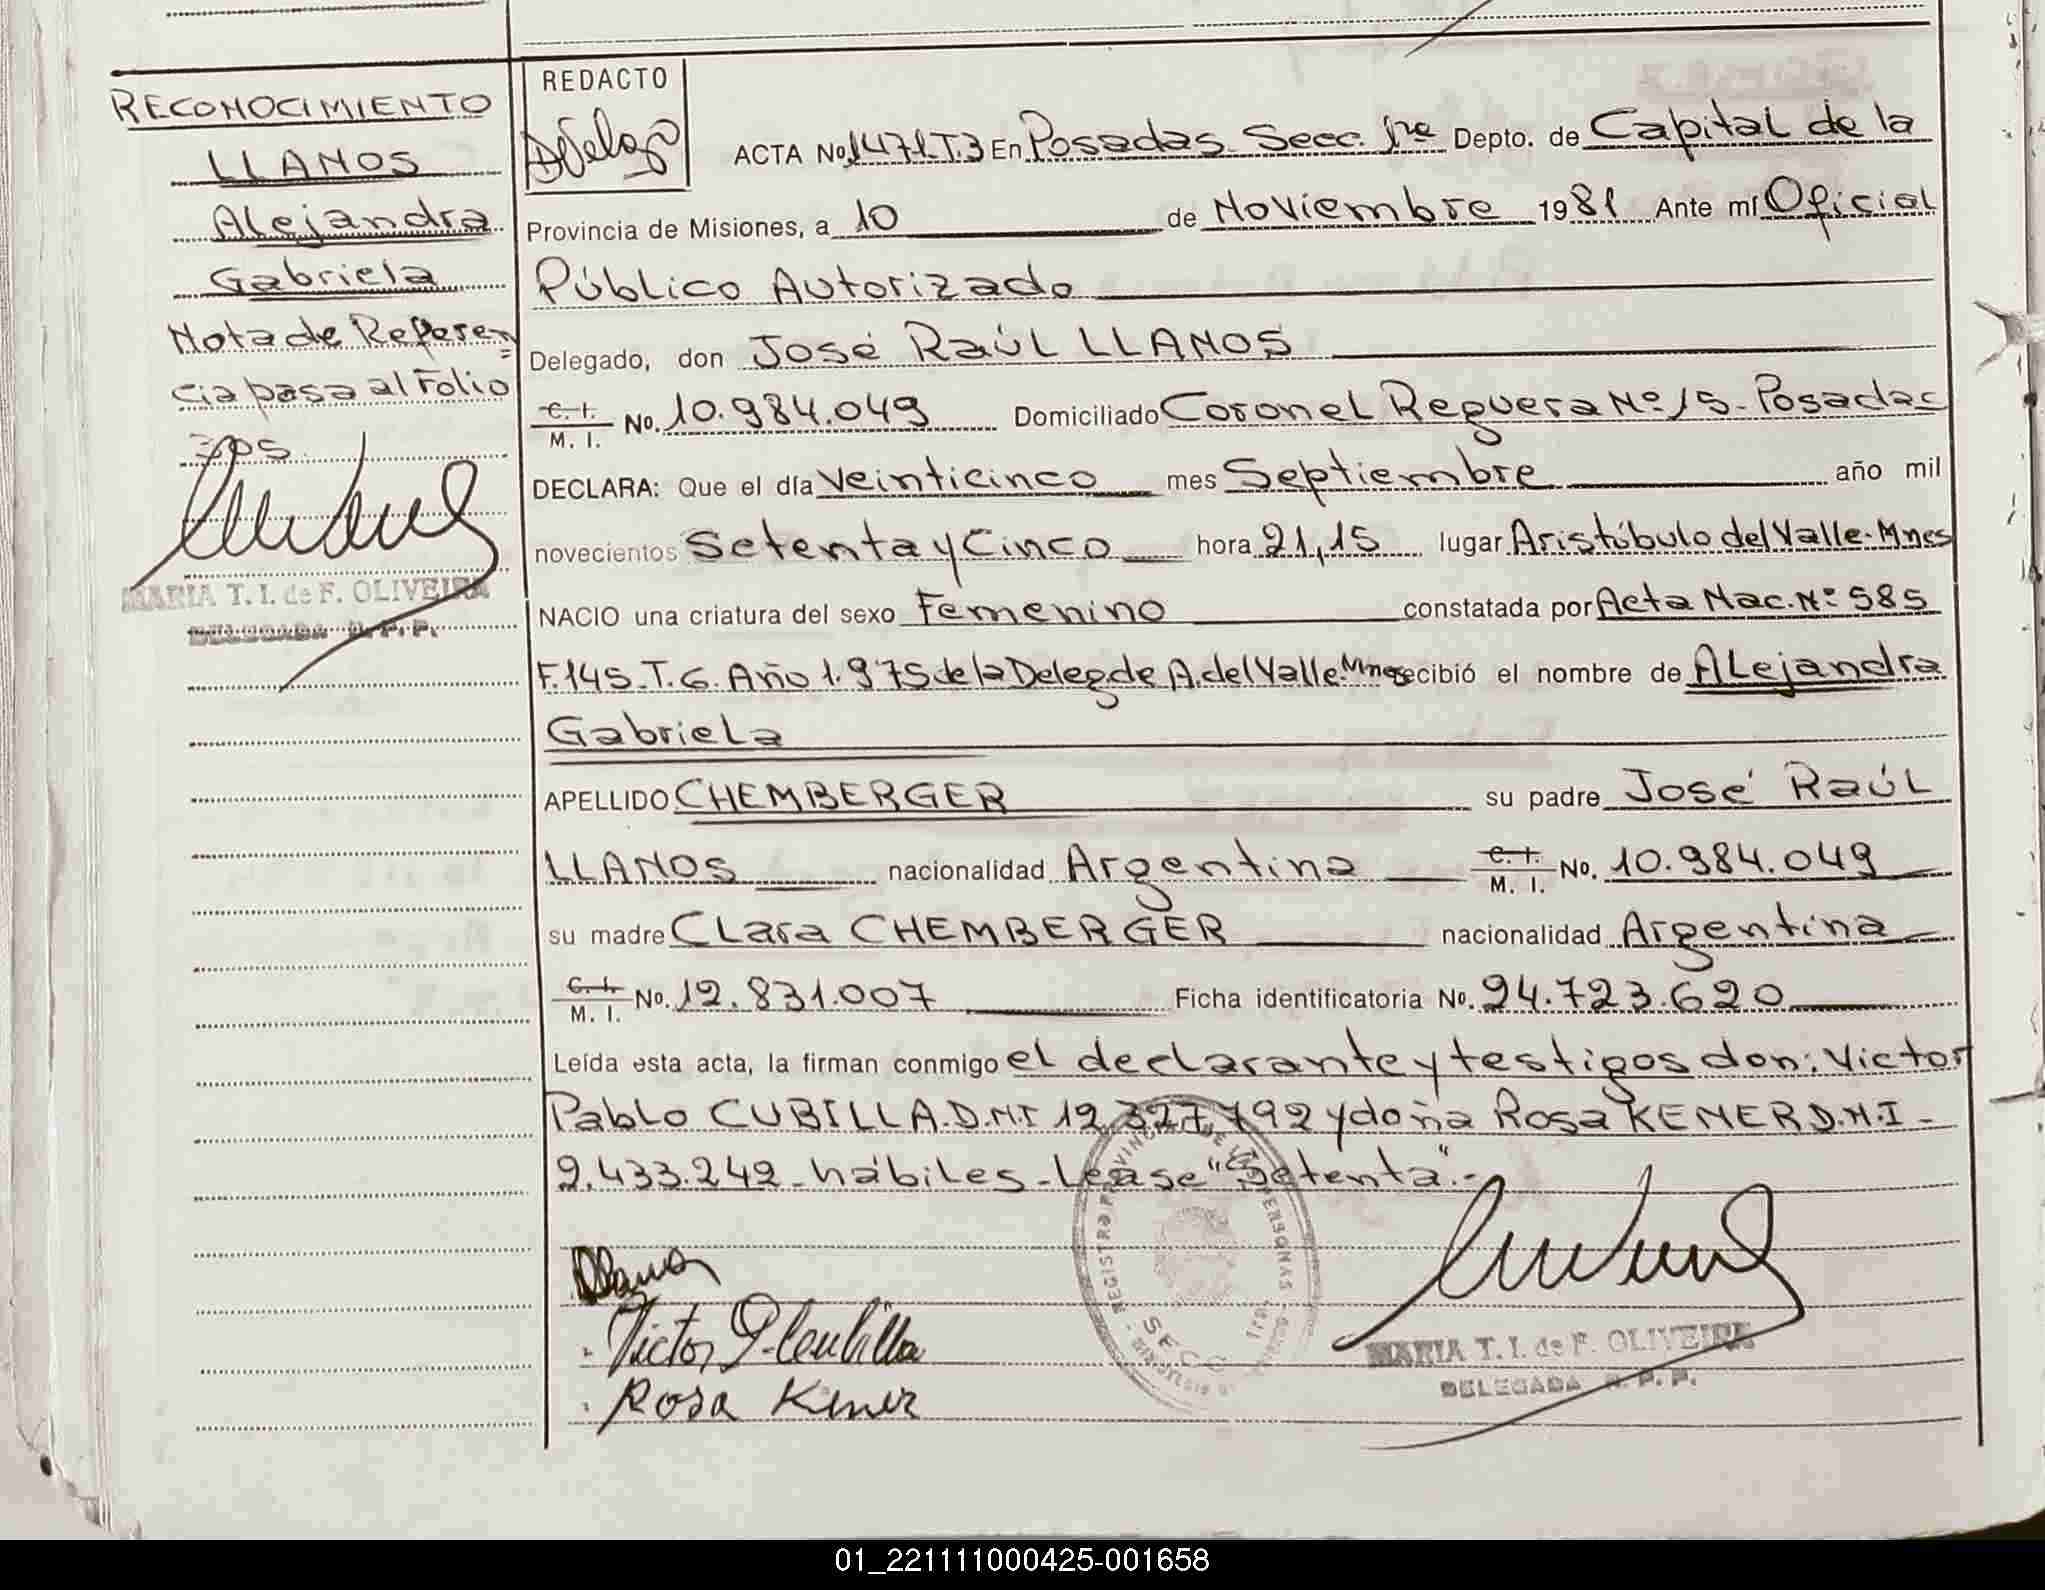 RECONOCIMIENTO
LLANOS
Alejandra
Gabriela
Nota de Referen=
cia pasa al Folio
305
MARIA T. I. de F. OLIVEIRA
DELEGADA R. P. P.
REDACTO
ACTA No. 1471.T.3 En Posadas Secc. 1ra Depto. de Capital de la
Provincia de Misiones, a 10 de Noviembre 1981 Ante mí Oficial
Público Autorizado
Delegado, don José Raúl LLANOS
C. I. M. I. No. 10.984.049 Domiciliado Coronel Reguera Nº 15- Posadas
DECLARA: Que el día veinticinco mes Septiembre año mil
novecientos Setenta y Cinco hora 21,15 lugar Aristóbulo del Valle-Mnes
NACIO una criatura del sexo Femenino constatada por Acta Nac. Nº 585
F.145.T.6. Año 1.975 de la Deleg. de A. del Valle-Mnes recibió el nombre de ALejandra
Gabriela
APELLIDO CHEMBERGER su padre José Raúl
LLANOS nacionalidad Argentina C. I. M. I. No. 10.984.049
su madre Clara CHEMBERGER nacionalidad Argentina
C. I. M. I. No. 12.831.007 Ficha identificatoria No. 24.723.620
Leída esta acta, la firman conmigo el declarante y testigos don: Victor
Pablo CUBILLA.D.N.I 12.327.792 y doña Rosa KENER D.N.I-
2.433.242-hábiles-Lease "Setenta".-
Victor P. Cubilla
Rosa Kener
SECC
MARIA T. I. de F. OLIVEIRA
DELEGADA R. P. P.
01_221111000425-001658